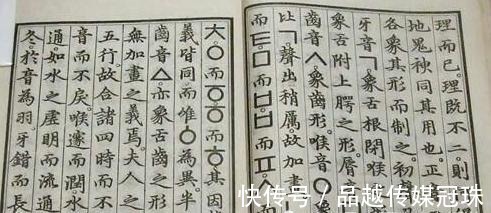 理而已。理既不二。則
地鬼神同其用也。正
各象其形而制之。初
牙音ㄱ。象舌根閉喉
象舌附上腭之形。脣
齒音ㅅ。象齒形。喉音ㅇ。
比ㄱ。聲出稍厲。故加
而ㅌ。ㅁ而ㅂ。ㅂ而ㅍ。
ㅊ。ㅇ而ㆆ。ㆆ而ㅎ。其因
義皆同。而唯ㆁ為異。半
齒音ㅿ。亦象舌齒之形
無加畫之義焉。夫人之
五行。故合諸四時而不
音而不戾。喉邃而潤。水
通。如水之虛明而流通
冬。於音為羽。牙錯而長
快传号 / 品越传媒冠珠